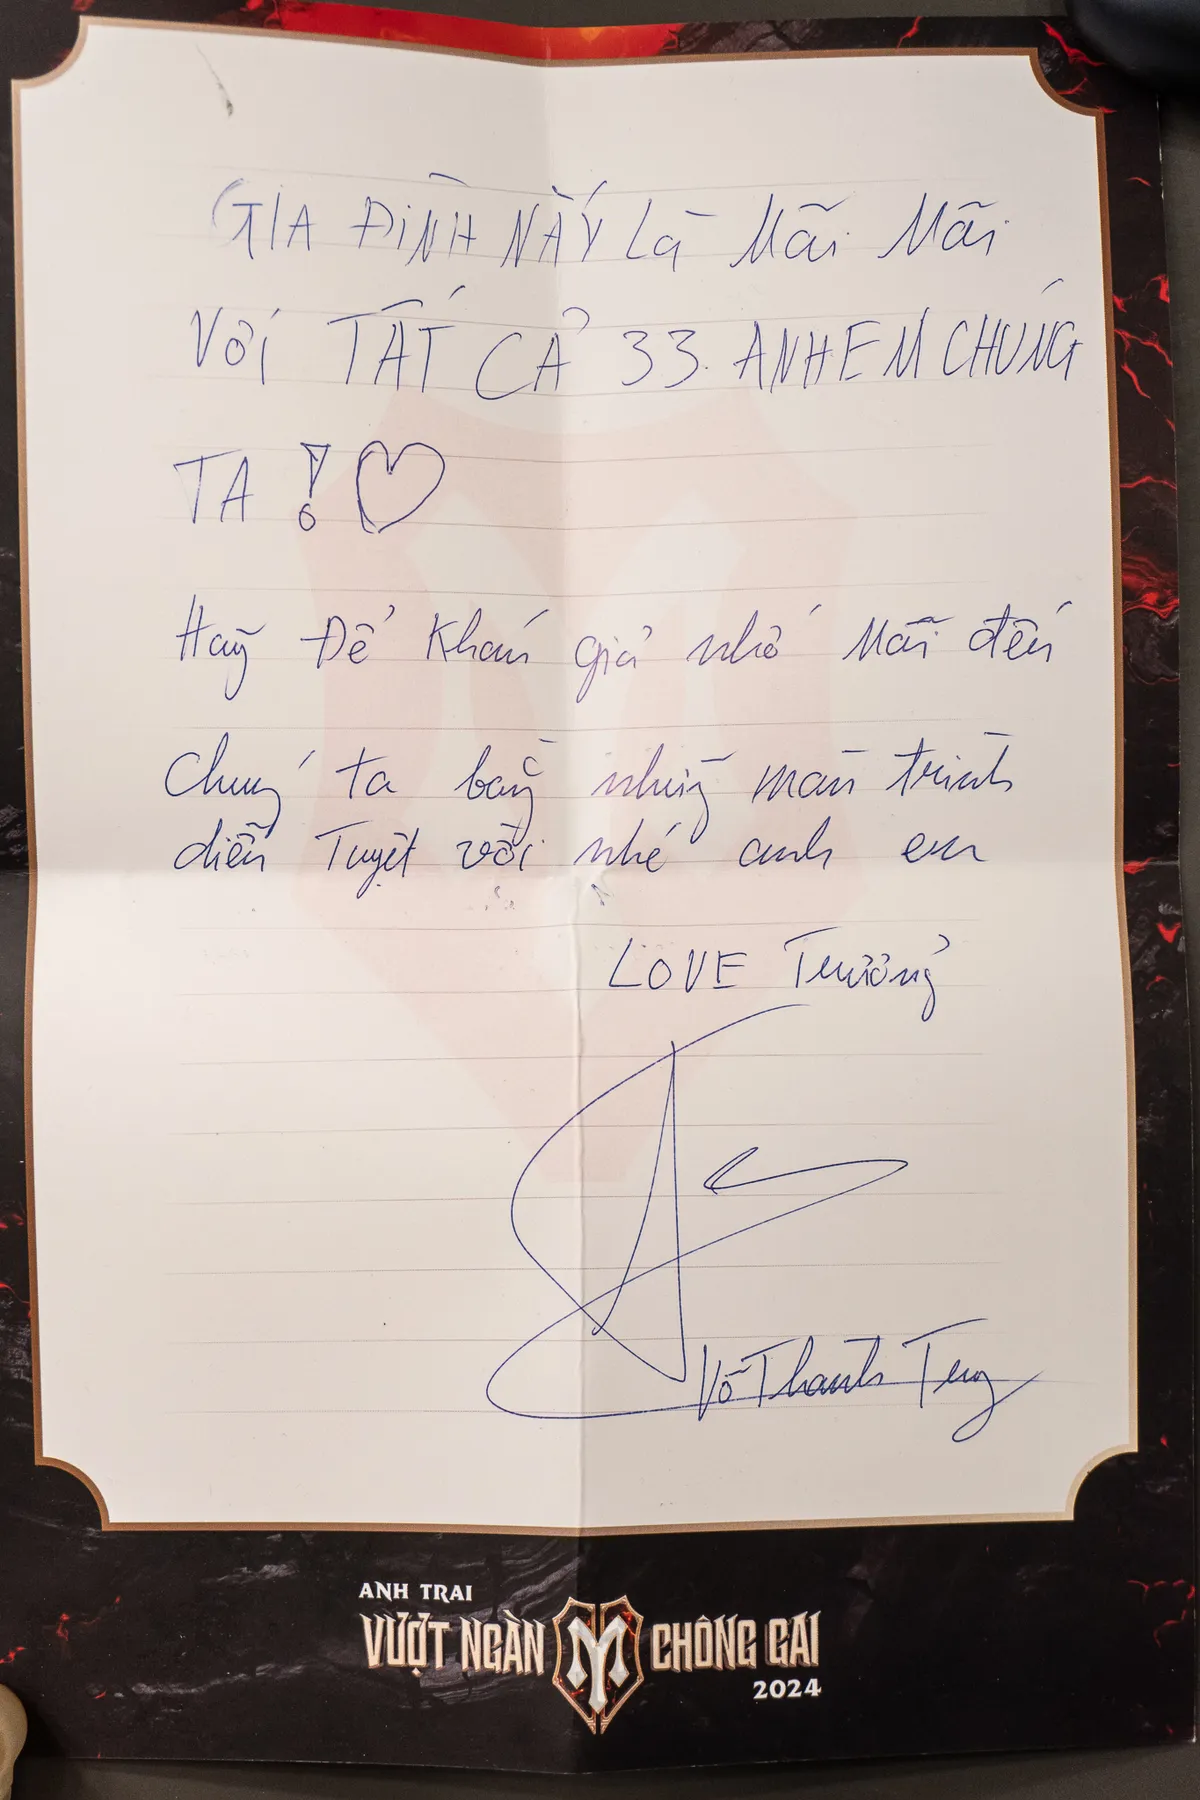 GIA ĐÌNH NÀY Là Mãi Mãi
Với TẤT CẢ 33 ANH EM CHÚNG
TA! ♡
Hãy Để Khán giả nhớ Mãi đến
Chúng ta bằng những màn trình
diễn Tuyệt vời nhé anh em
LOVE Trưởng
Võ Thành
ANH TRAI
VƯỢT NGÀN CHÔNG GAI
2024